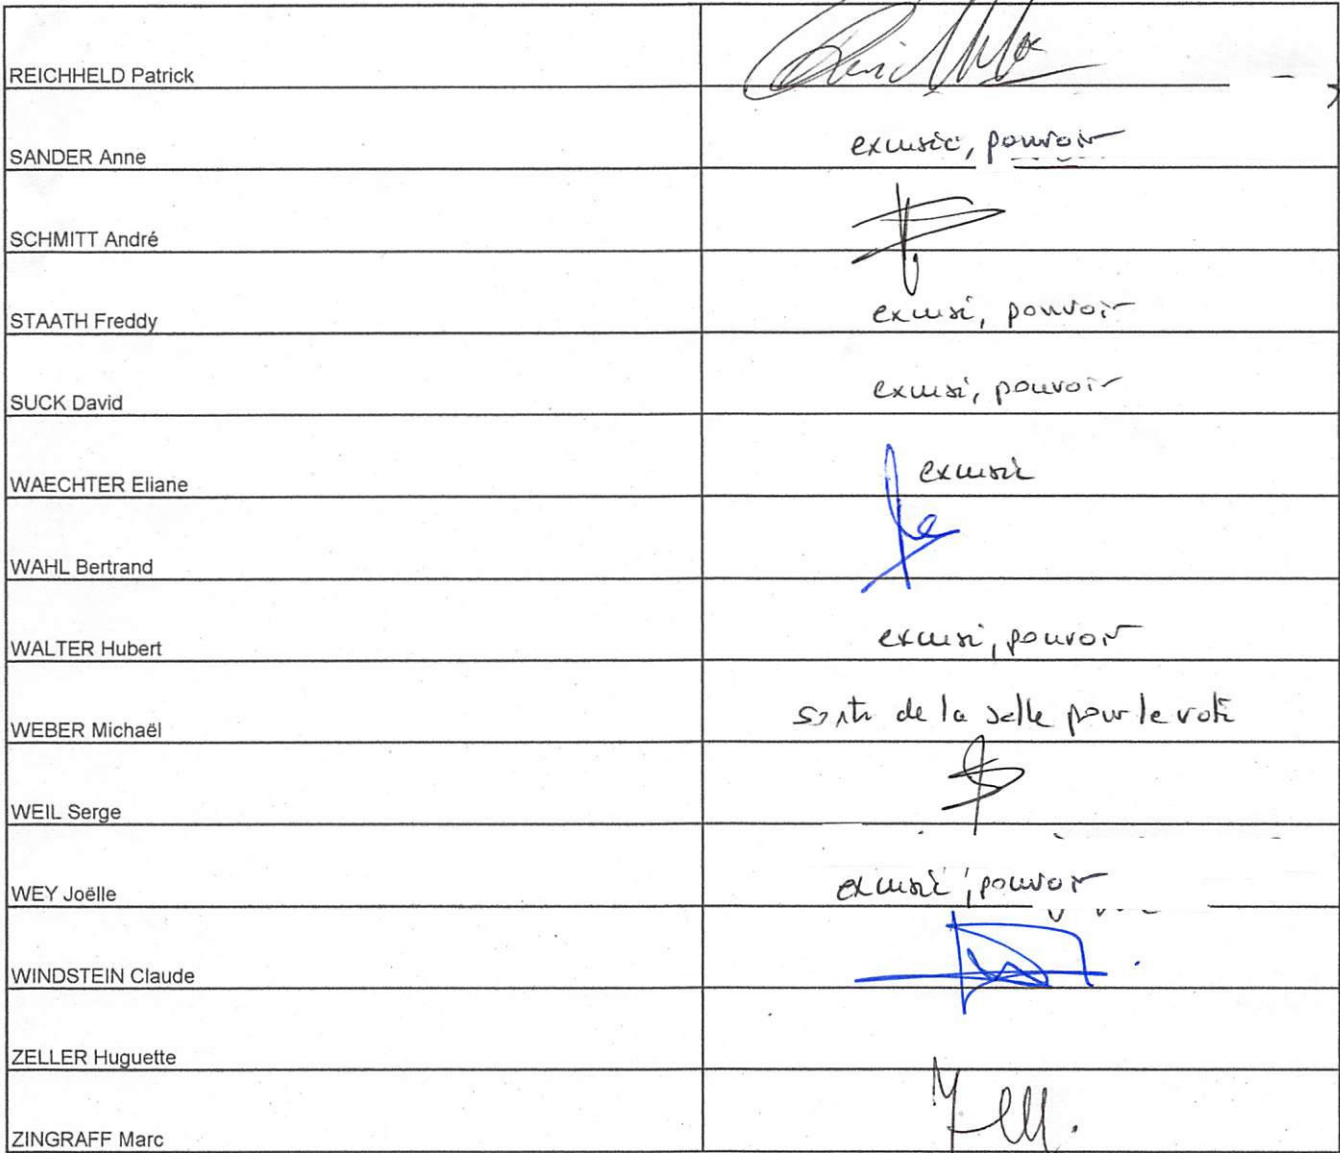 REICHHELD Patrick
SANDER Anne excusée, pouvoir
SCHMITT André
STAATH Freddy excusé, pouvoir
SUCK David excusé, pouvoir
WAECHTER Eliane excusée
WAHL Bertrand
WALTER Hubert excusé, pouvoir
WEBER Michaël sorti de la salle pour le vote
WEIL Serge
WEY Joëlle excusée, pouvoir
WINDSTEIN Claude
ZELLER Huguette
ZINGRAFF Marc